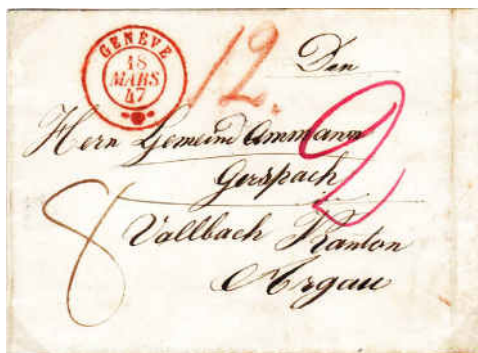 GENÈVE
18
MARS
47
12.
Den
Hern Gemeind Ammann
Gerspach
2
8
Vallbach Kanton
Argau